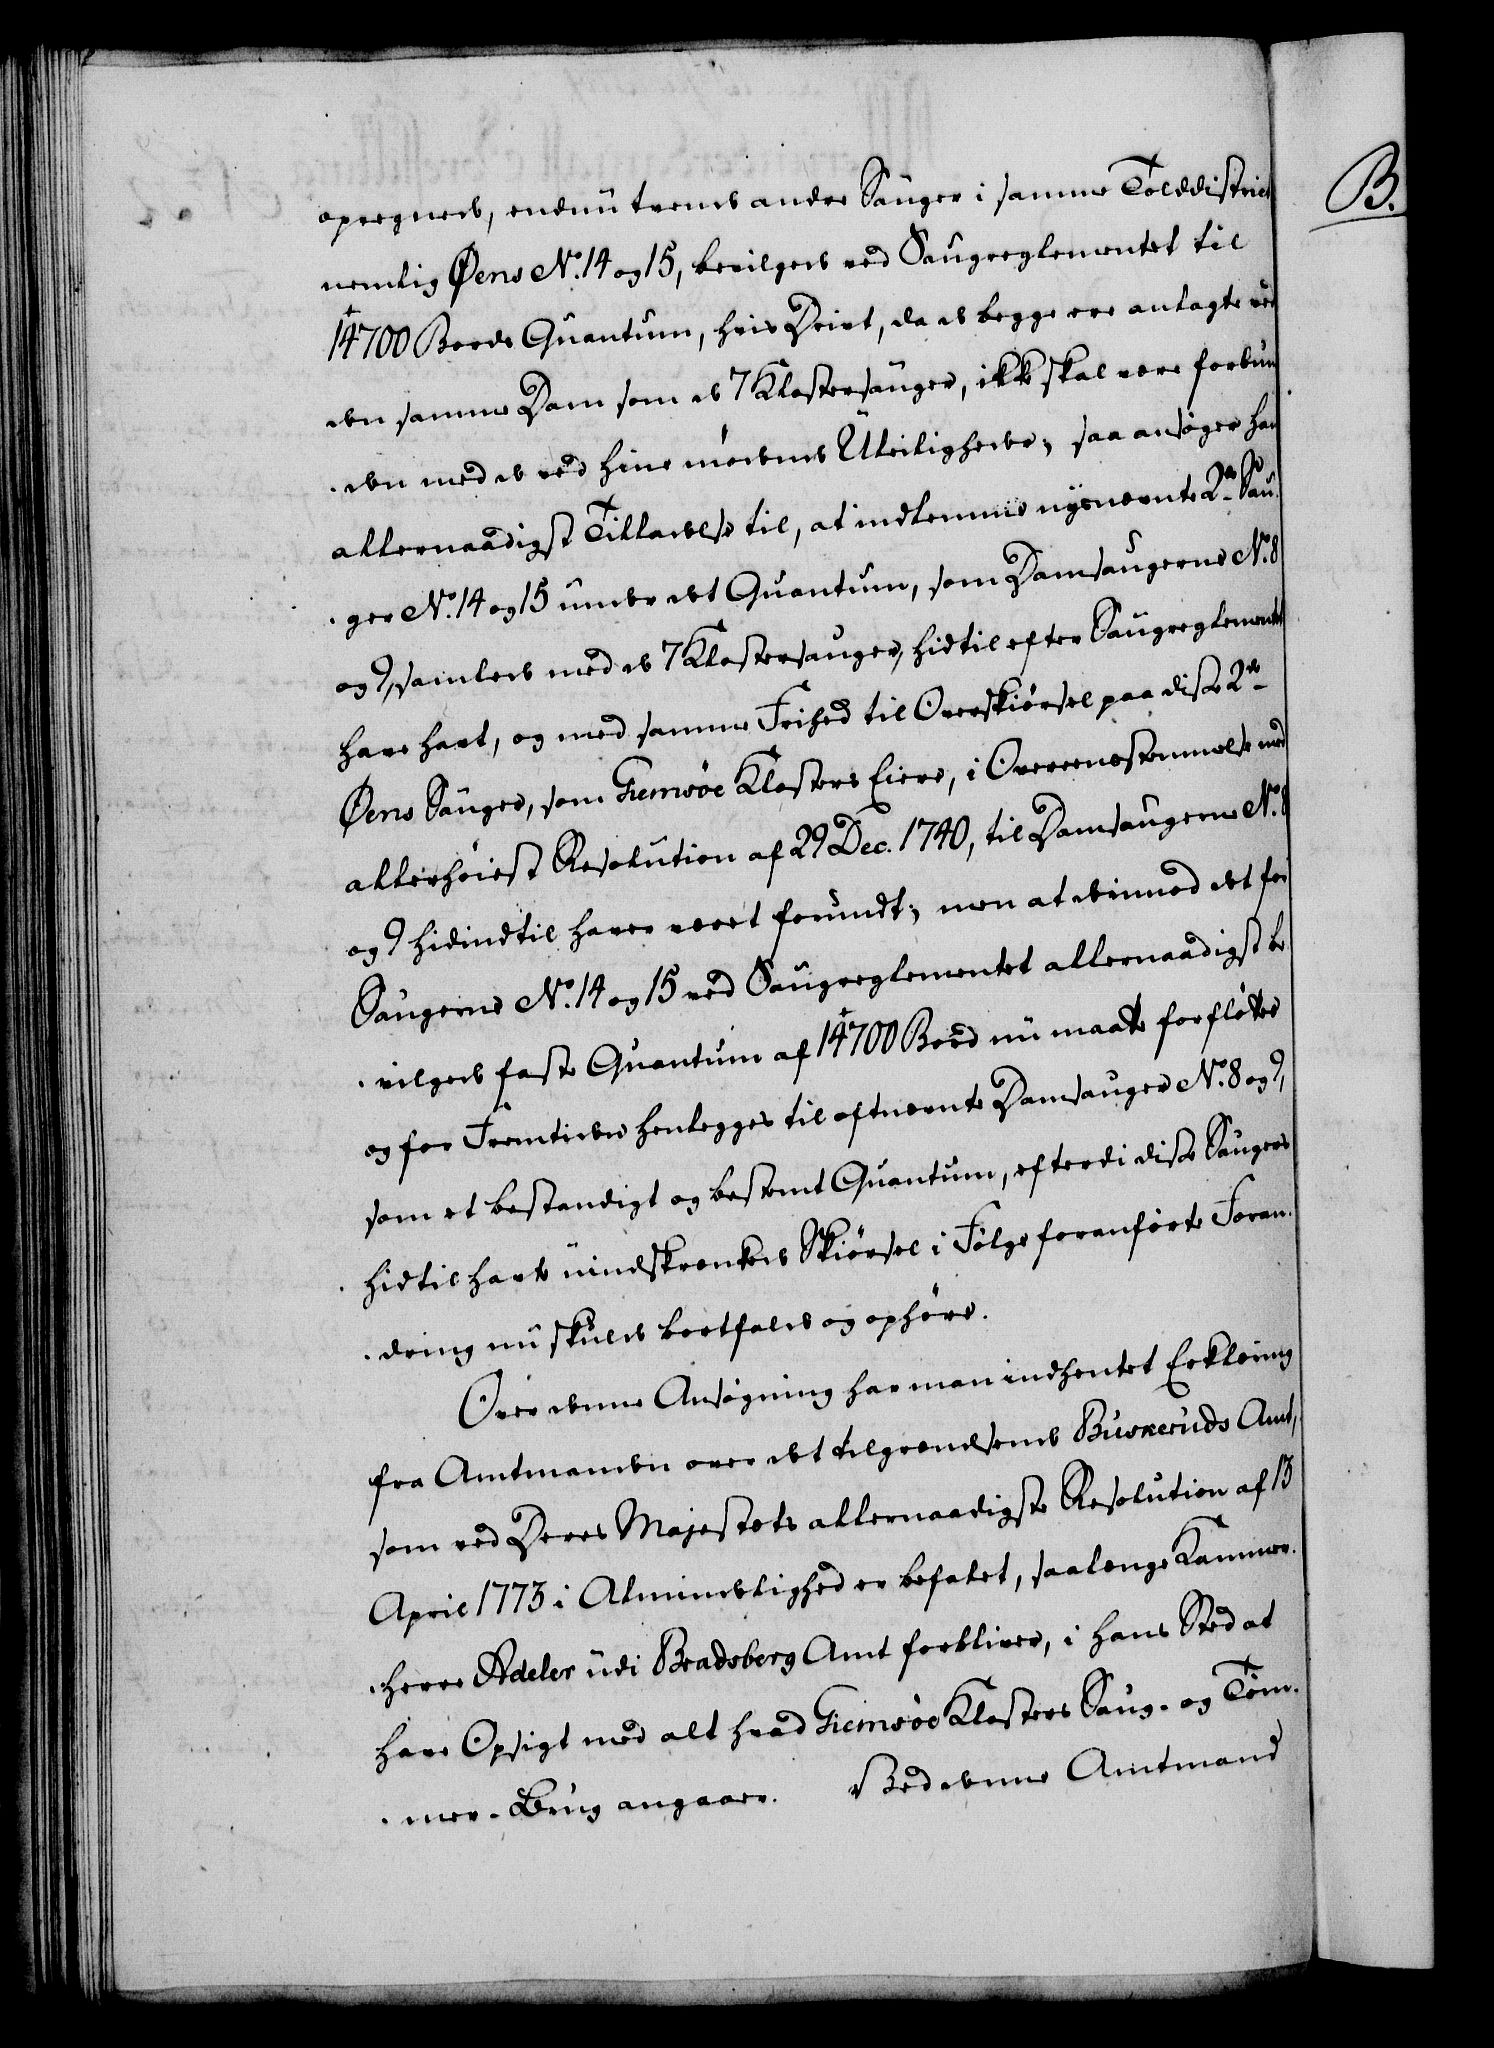 B.
opregnede, endnu tvende andre Sauger i samme Tolddistrict
nemlig Øens No. 14 og 15, bevilgede ved Saugreglementet til
14700 Bords Quantum, hvis Drivt, da de begge ere anlagte ved
den samme Dam som de 7 Klostersauger, ikke skal være forbun¬
den med de ved hine mødende Uleiligheder; saa ansøger han
allernaadigst Tilladelse til, at indlemme nysnævnte 2de Sau¬
ger No. 14 og 15 under det Quantum, som Damsaugerne No. 8
og 9, samlede med de 7 Klostersauger, hidtil efter Saugreglementet
have havt, og med samme Frihed til Overskiørsel paa disse 2de
Øens Sauger, som Giemsøe Klosters Eiere, i Overeensstemmelse med
allerhøiest Resolution af 29 Dec. 1740, til Damsaugerne No. 8
og 9 hidindtil haver været forundt; men at derimod det for
Saugerne No. 14 og 15 ved Saugreglementet allernaadigst be¬
vilgede faste Quantum af 14700 Bord nu maatte forfløttes
og for Fremtiden henlegges til oftnævnte Damsauger No. 8 og 9,
som et bestandigt og bestemt Quantum, efterdi disse Saugers
hidtil havte uindskrænkede Skiørsel i Følge foranførte Foran¬
dring nu skulde bortfalde og ophøre.
Over denne Ansøgning har man indhentet Erklæring
fra Amtmanden over det tilgrændsende Buskeruds Amt,
som ved Deres Majestets allernaadigste Resolution af 13
April 1773 i Almindelighed er befalet, saalænge Kammer¬
herre Adeler udi Bradsberg Amt forbliver, i hans Sted at
have Opsigt med alt hvad Giemsøe Klosters Saug- og Tøm¬
mer-Brug angaaer. Bed denne Amtmand